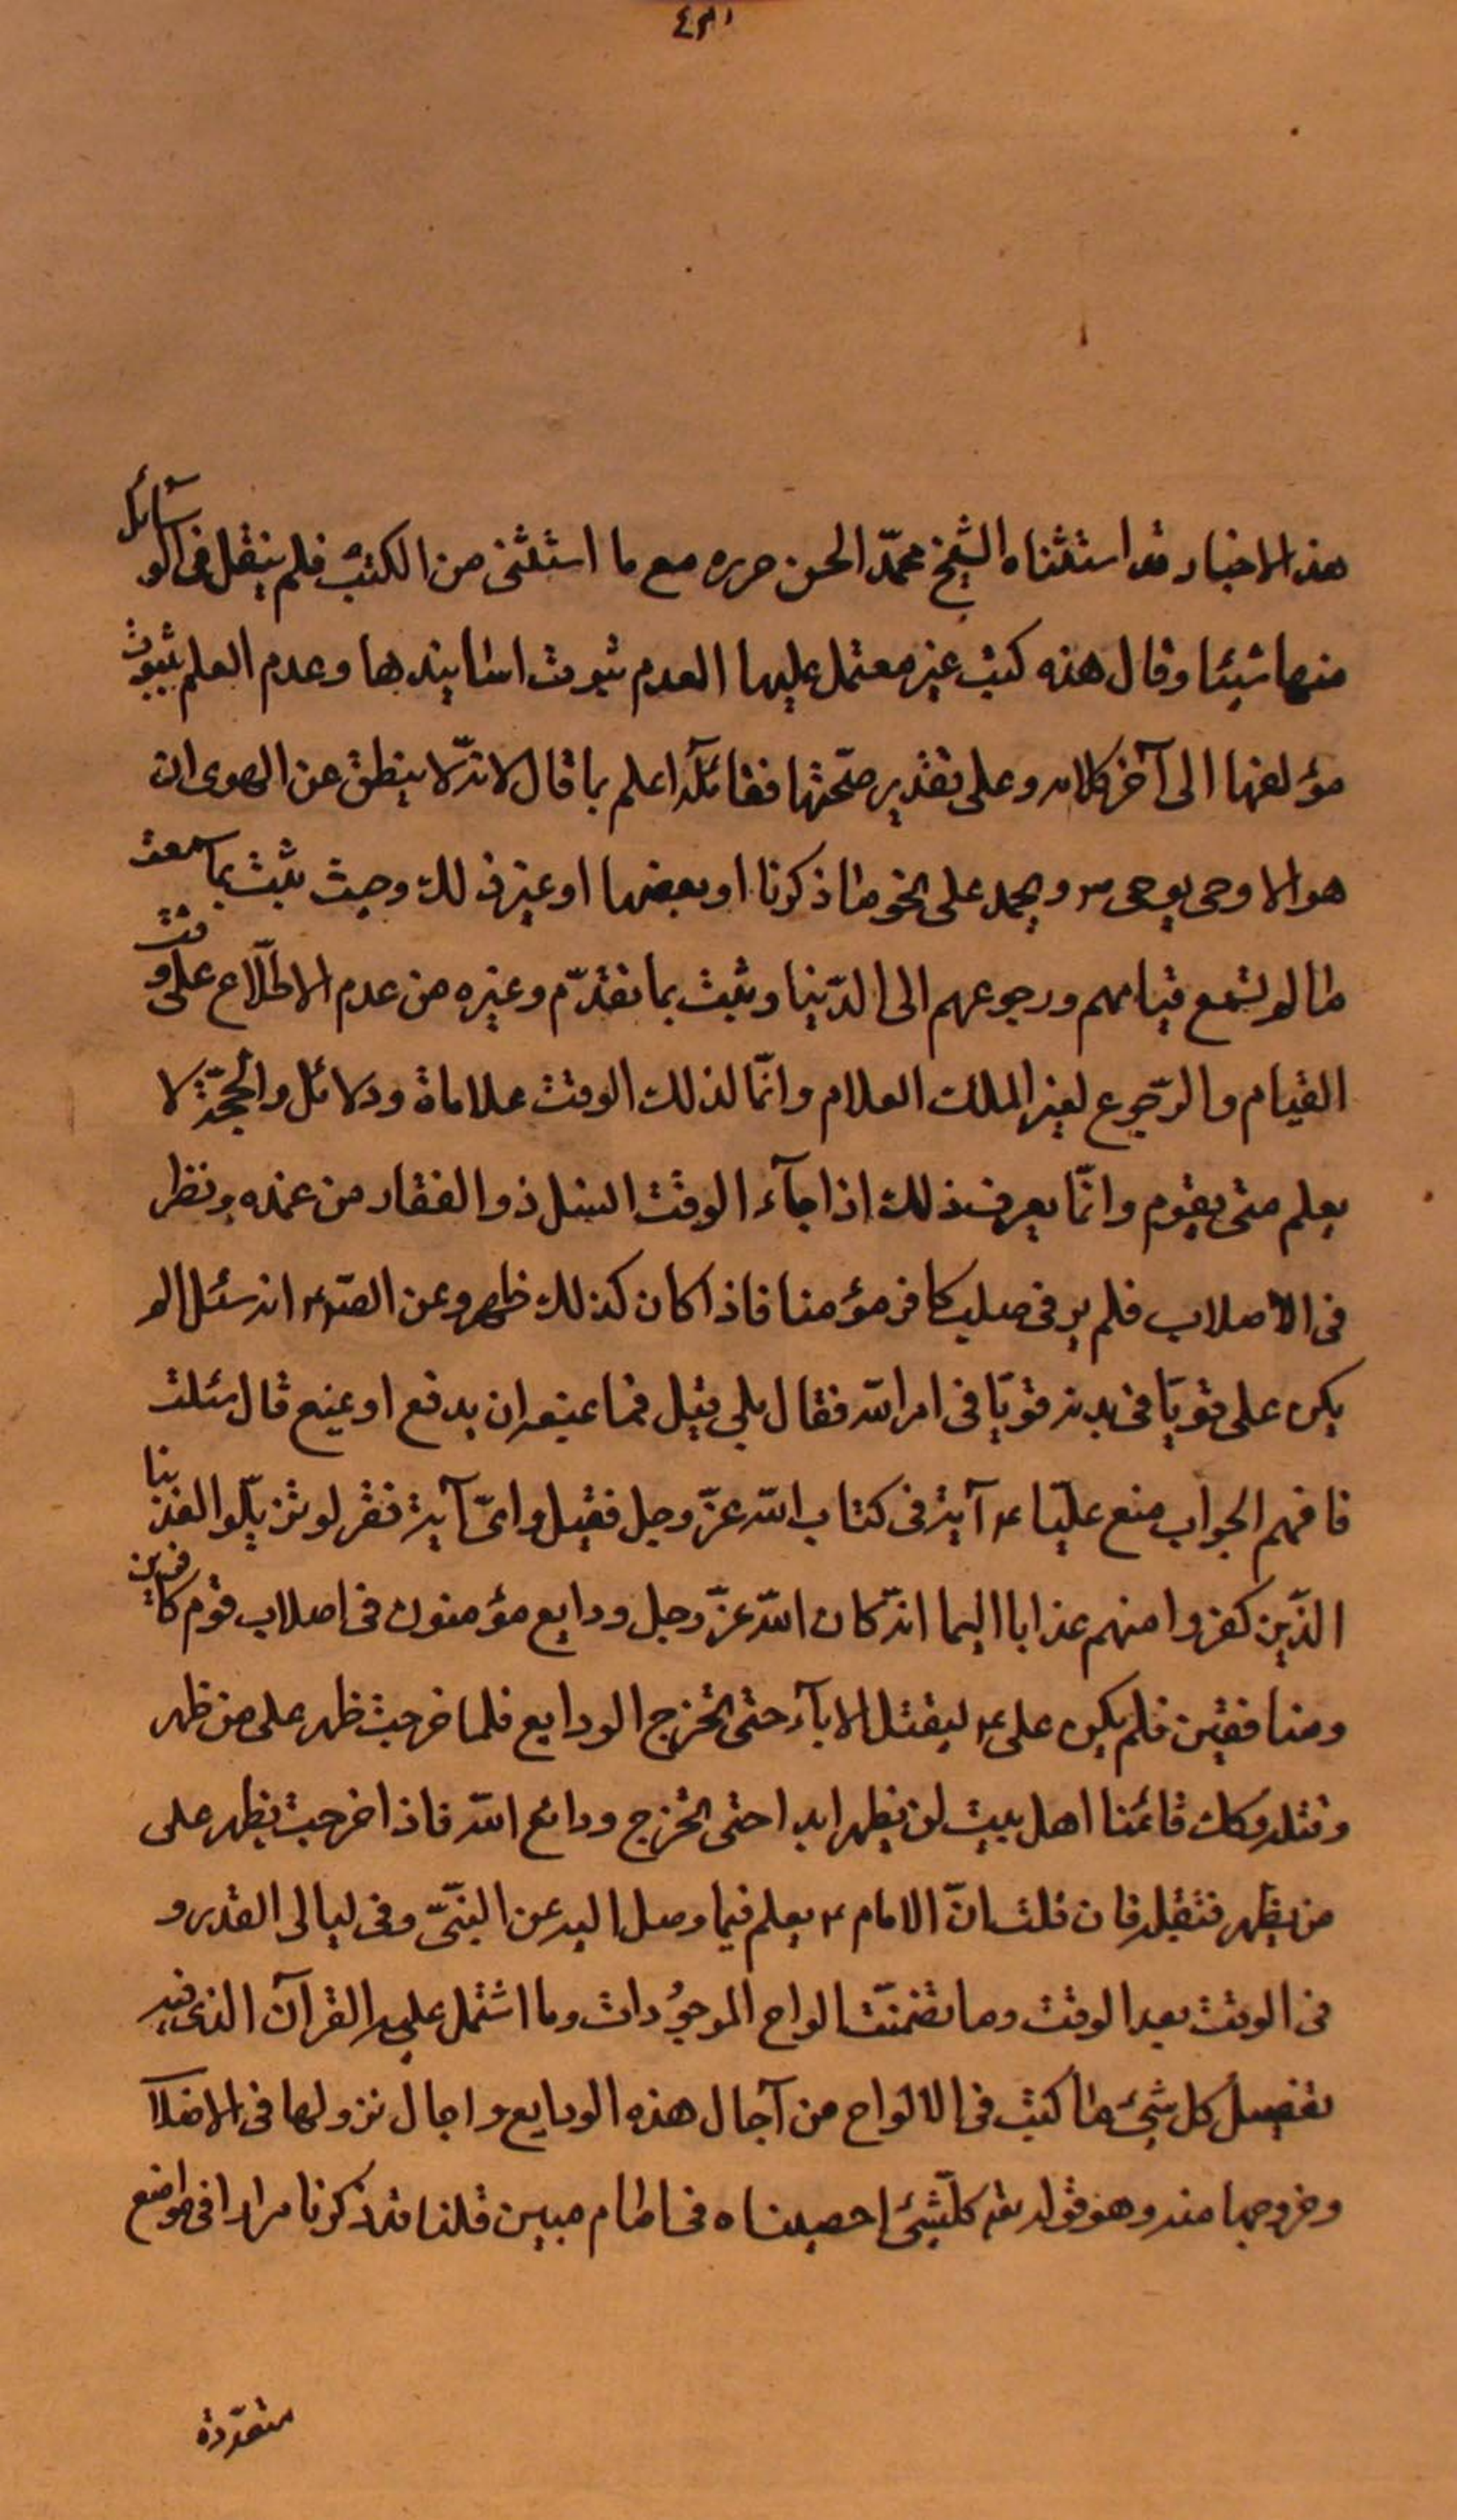 هذه الاخبار قد استثناه الشيخ محمّد الحسن حره مع ما استثنى من الكتب فلم ينقل فى الوسائل
منها شيئا وقال هذه كتب غير معتمل عليها العدم ثبوت اسانيدها وعدم العلم بثبوت
مؤلفها الى آخر كلامه وعلى تقدير صحّتها فقائله اعلم بما قال لانّه لا ينطق عن الهوى ان
هو الا وحى يوحى ويحمل على نحو ما ذكرنا او بعضها او غير ذلك وحيث ثبت بما سمعت
مما لم تسمع قيامهم ورجوعهم الى الدّنيا وثبت بما تقدّم وغيره من عدم الاطّلاع على وقت
القيام والرّجوع لغير الملك العلام وانّما لذلك الوقت علاماة ودلائل والحجّة لا
يعلم متى يقوم وانّما يعرف ذلك اذا جآء الوقت انسل ذو الفقار من غمده ونظر
فى الاصلاب فلم ير فى صلب كافر مؤمنا فاذا كان كذلك ظهر وعن الصّ ع انه سئل الم
يكن على قويّا فى بدنه قويّا فى امر الله فقال بلى قيل فما يمنعه ان يدفع او يمنع قال سئلت
فافهم الجواب منع عليّا ع آية فى كتاب الله عزّ وجل فقيل واىّ آية فقر لو تزيّلوا لعذبنا
الذّين كفروا منهم عذابا اليما انّه كان الله عزّ وجل ودايع مؤمنون فى اصلاب قوم كافرين
ومنافقين فلم يكن على ع ليقتل الابآء حتى تخرج الودايع فلما خرجت ظهر على من ظهر
وقتله وكك قائمنا اهل بيت لن يظهر ابدا حتى تخرج ودائع الله فاذا خرجت يظهر على
من يظهر فتقله فان قلت انّ الامام ع يعلم فيما وصل اليه عن النّبىّ وفى ليالى القدر و
فى الوقت بعد الوقت وما تضمنّت الواح الموجُودات وما اشتمل عليه القرآن الذى فيه
تفصيل كل شئ مما كتب فى الالواح من آجال هذه الودايع واجال نزولها فى الافلاا
وخروجها منه وهو قوله تعه كلّشئ احصيناه فى امام مبين قلنا قد ذكرنا مرارا فى مواضع
متعدّدة